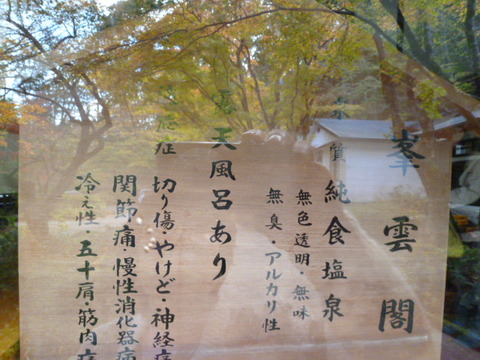 峯雲閣
泉質 純食塩泉
無色透明・無味
無臭・アルカリ性
露天風呂あり
適応症 切り傷・やけど・神経痛
関節痛 慢性消化器病
冷え性・五十肩・筋肉痛